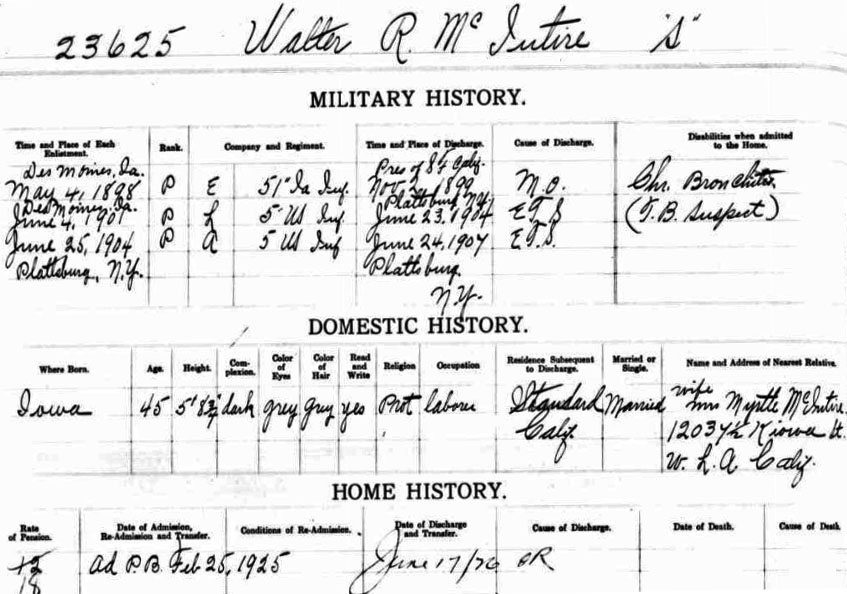 23625 Walter R. McIntire "S"
MILITARY HISTORY.
Time and Place of Each Enlistment. Rank. Company and Regiment. Time and Place of Discharge. Cause of Discharge. Disabilities when admitted to the Home.
Des Moines, Ia. Pres of S.F. Calif.
May 4, 1898 P E 51" Ia Inf. Nov. 2, 1899 M.O. Chr. Bronchitis
Des Moines, Ia. Plattsburg N.Y.
June 4, 1901 P L 5" US Inf June 23, 1904 E T S (T.B. Suspect)
June 25, 1904 P A 5 US Inf June 24, 1907 E.T.S.
Plattsburg, N.Y. Plattsburg
N.Y.
DOMESTIC HISTORY.
Where Born. Age. Height. Complexion. Color of Eyes Color of Hair Read and Write Religion Occupation Residence Subsequent to Discharge. Married or Single. Name and Address of Nearest Relative.
wife
Iowa 45 5' 8¾" dark grey grey yes Prot laborer Standard Married Mrs Myrtle McIntire
Calif. 12037½ Kiowa St.
W. L. A Calif.
HOME HISTORY.
Rate of Pension. Date of Admission, Re-Admission and Transfer. Conditions of Re-Admission. Date of Discharge and Transfer. Cause of Discharge. Date of Death. Cause of Death
12 Ad P.B. Feb 25, 1925 June 17/26 OR
18